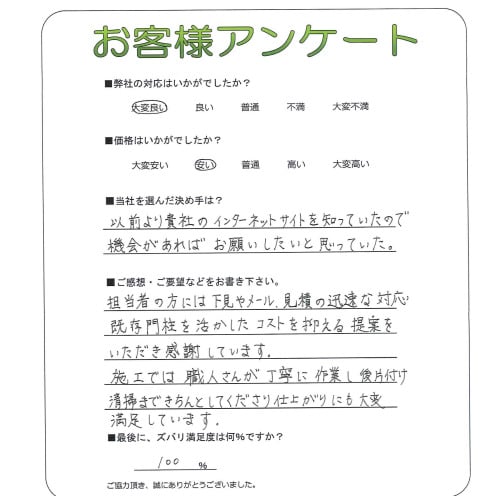 お客様アンケート
■弊社の対応はいかがでしたか？
大変良い 良い 普通 不満 大変不満
■価格はいかがでしたか？
大変安い 安い 普通 高い 大変高い
■当社を選んだ決め手は？
以前より貴社のインターネットサイトを知っていたので
機会があればお願いしたいと思っていた。
■ご感想・ご要望などをお書き下さい。
担当者の方には下見やメール、見積の迅速な対応
既存門柱を活かしたコストを抑える提案を
いただき感謝しています。
施工では職人さんが丁寧に作業し後片付け
清掃まできちんとしてくださり仕上がりにも大変
満足しています。
■最後に、ズバリ満足度は何％ですか？
100 ％
ご協力頂き、誠にありがとうございました。